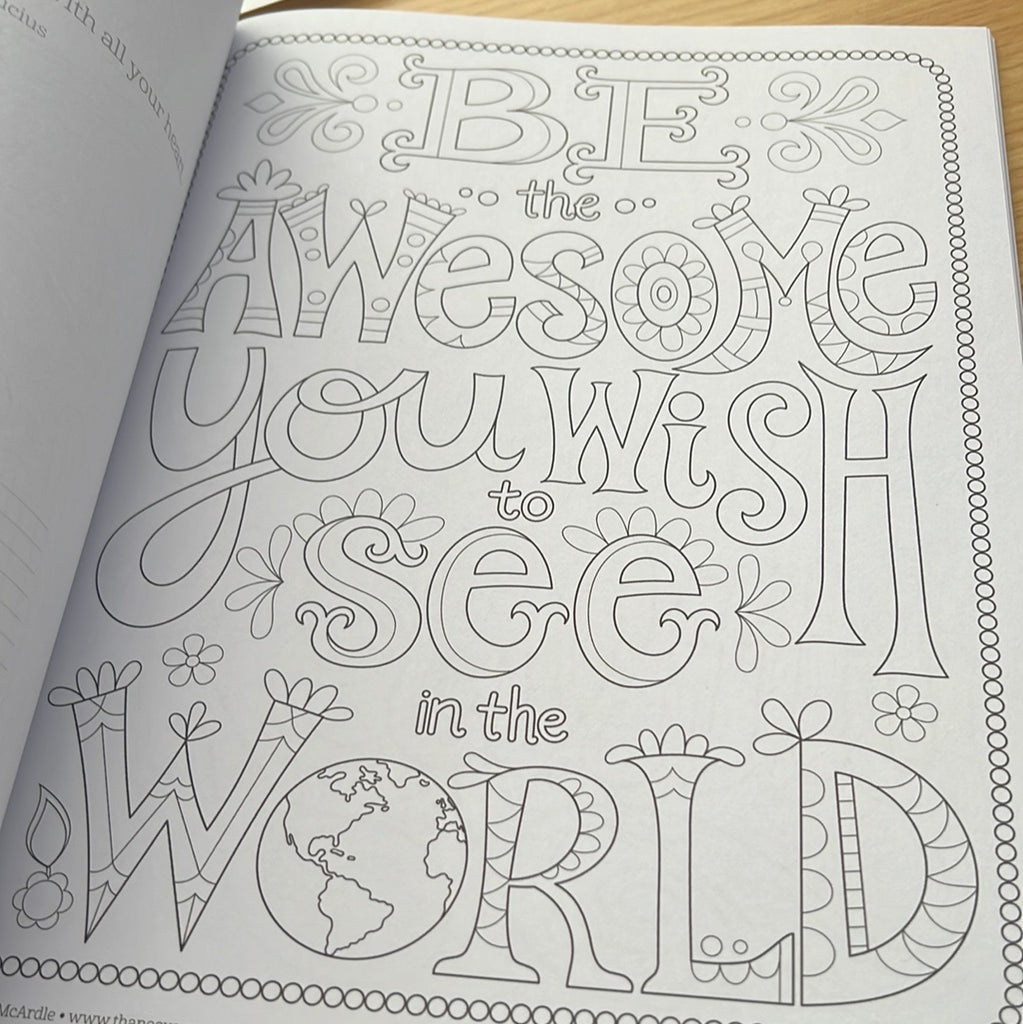 ith all your heart
ucius
BE
the
AWesoMe
you WiSH
to
see
in the
WORLD
McArdle • www.thaneey